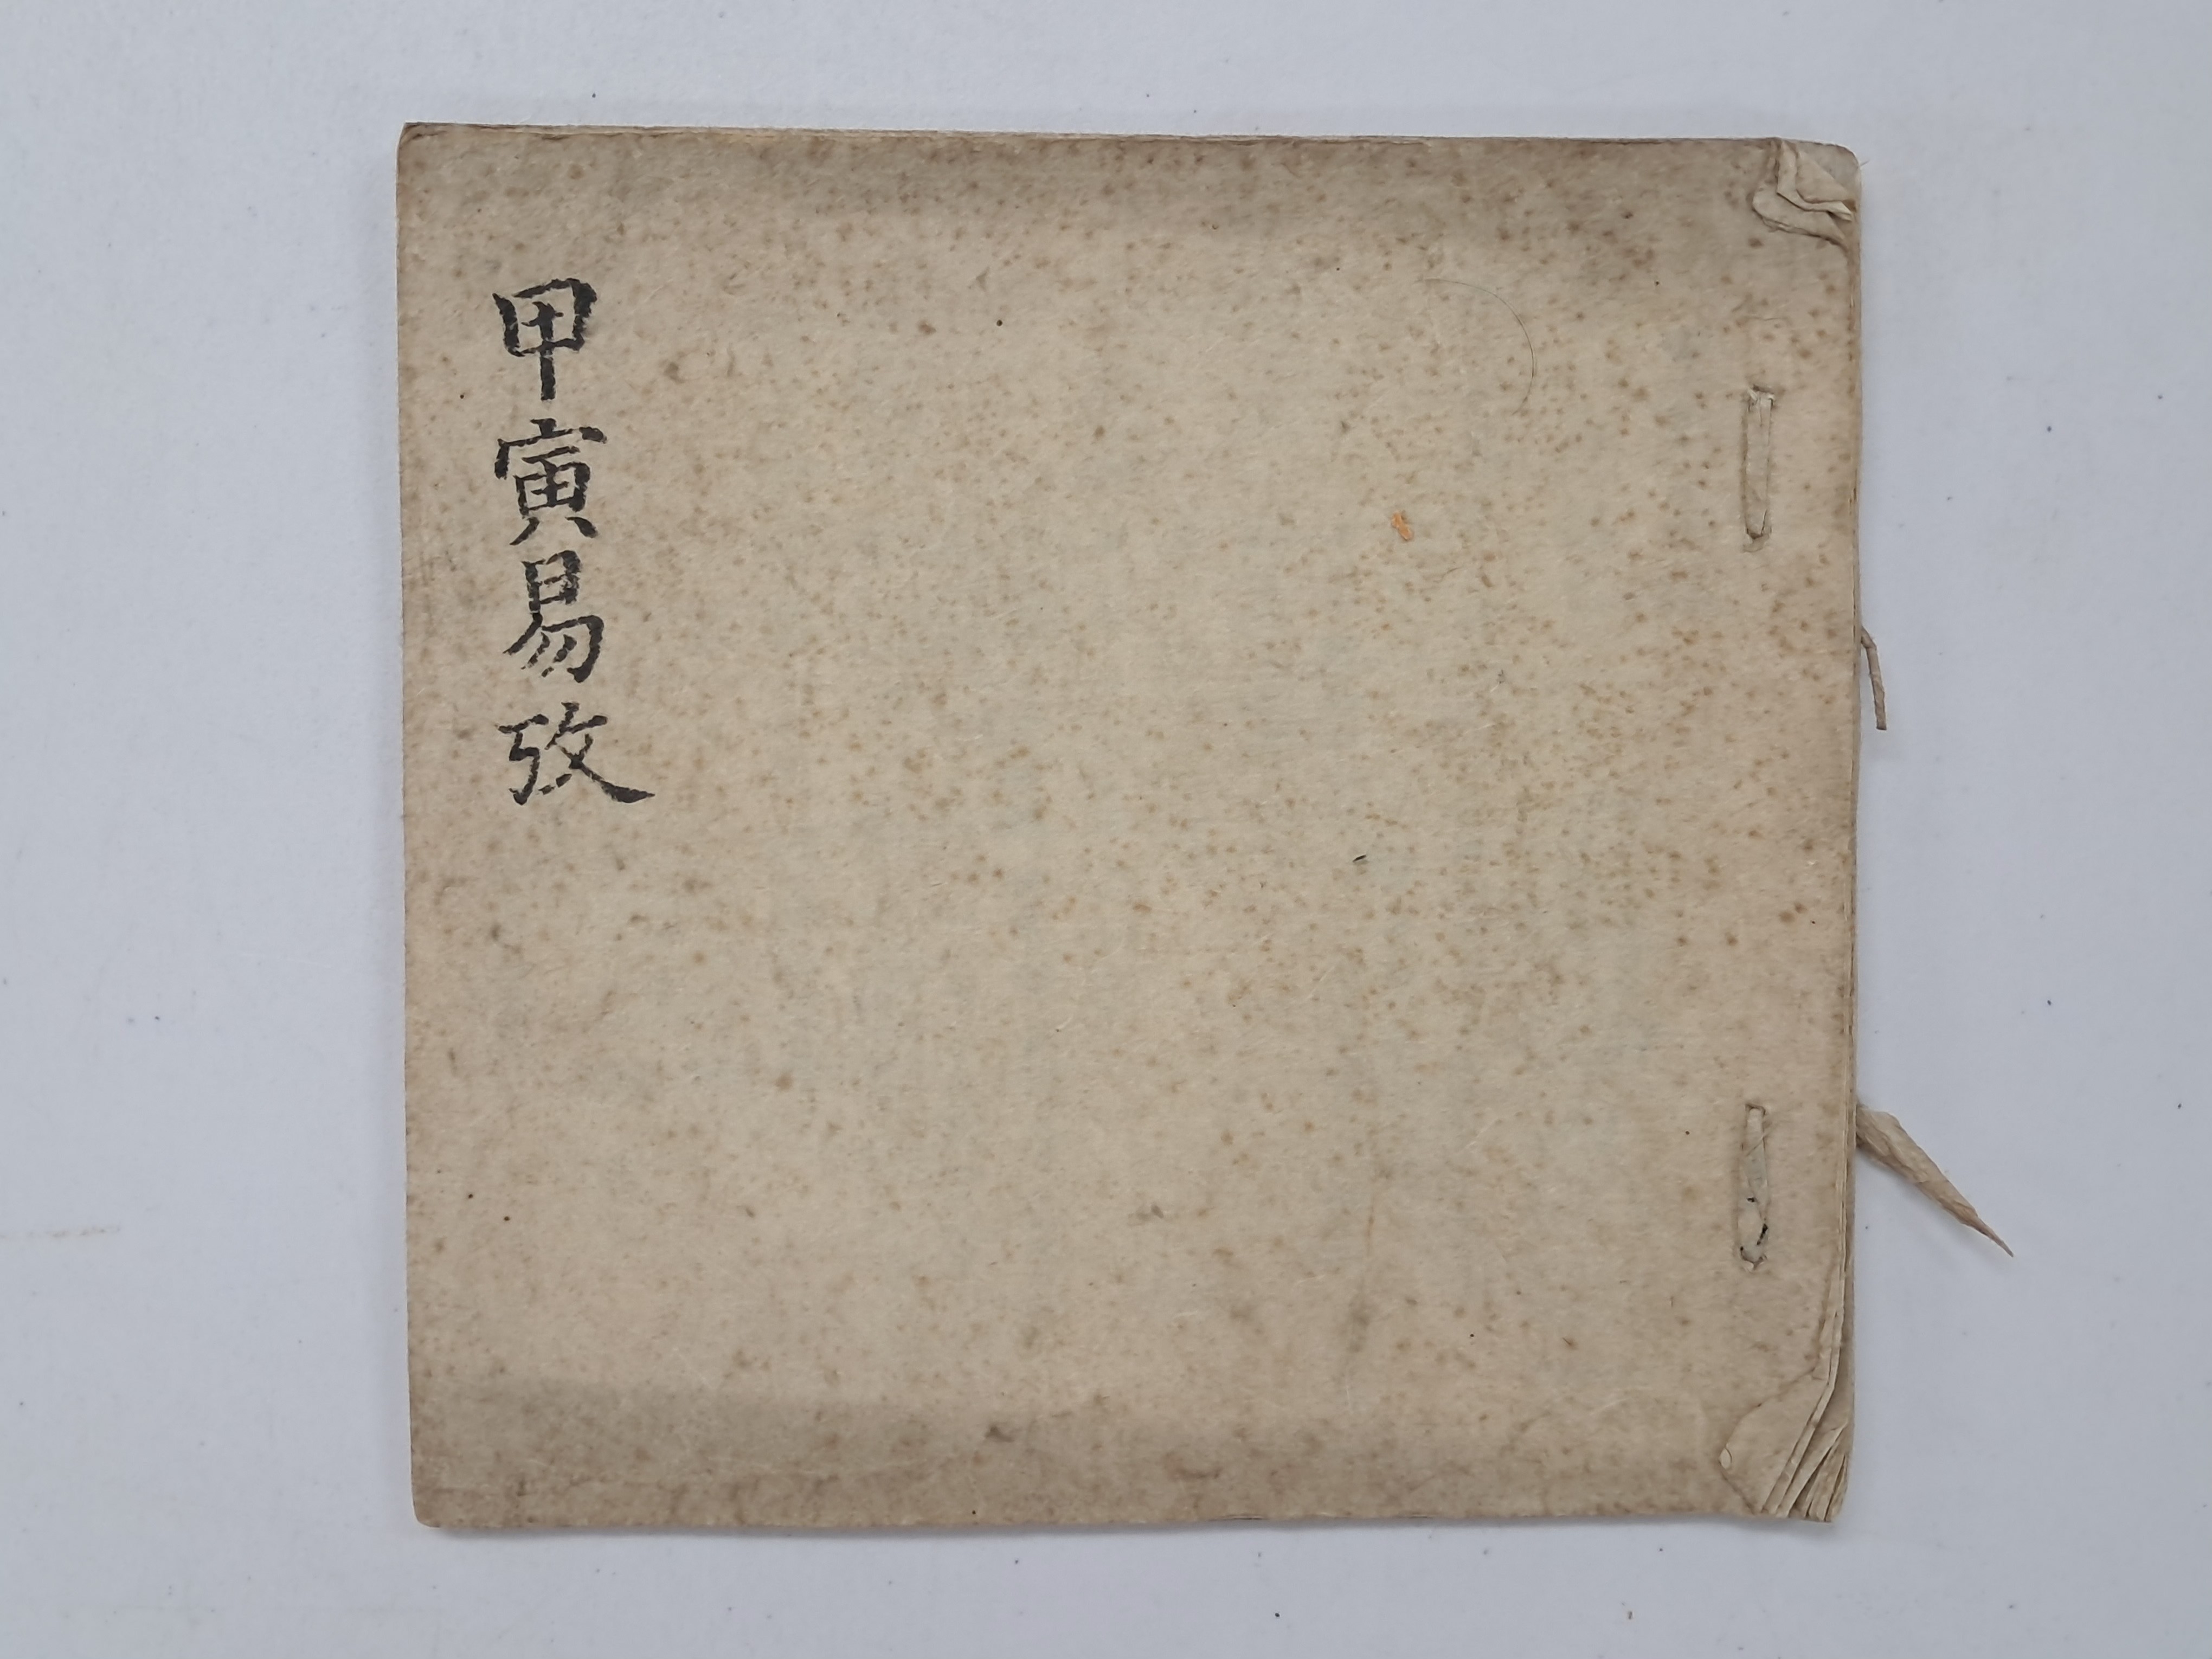 甲寅易攷